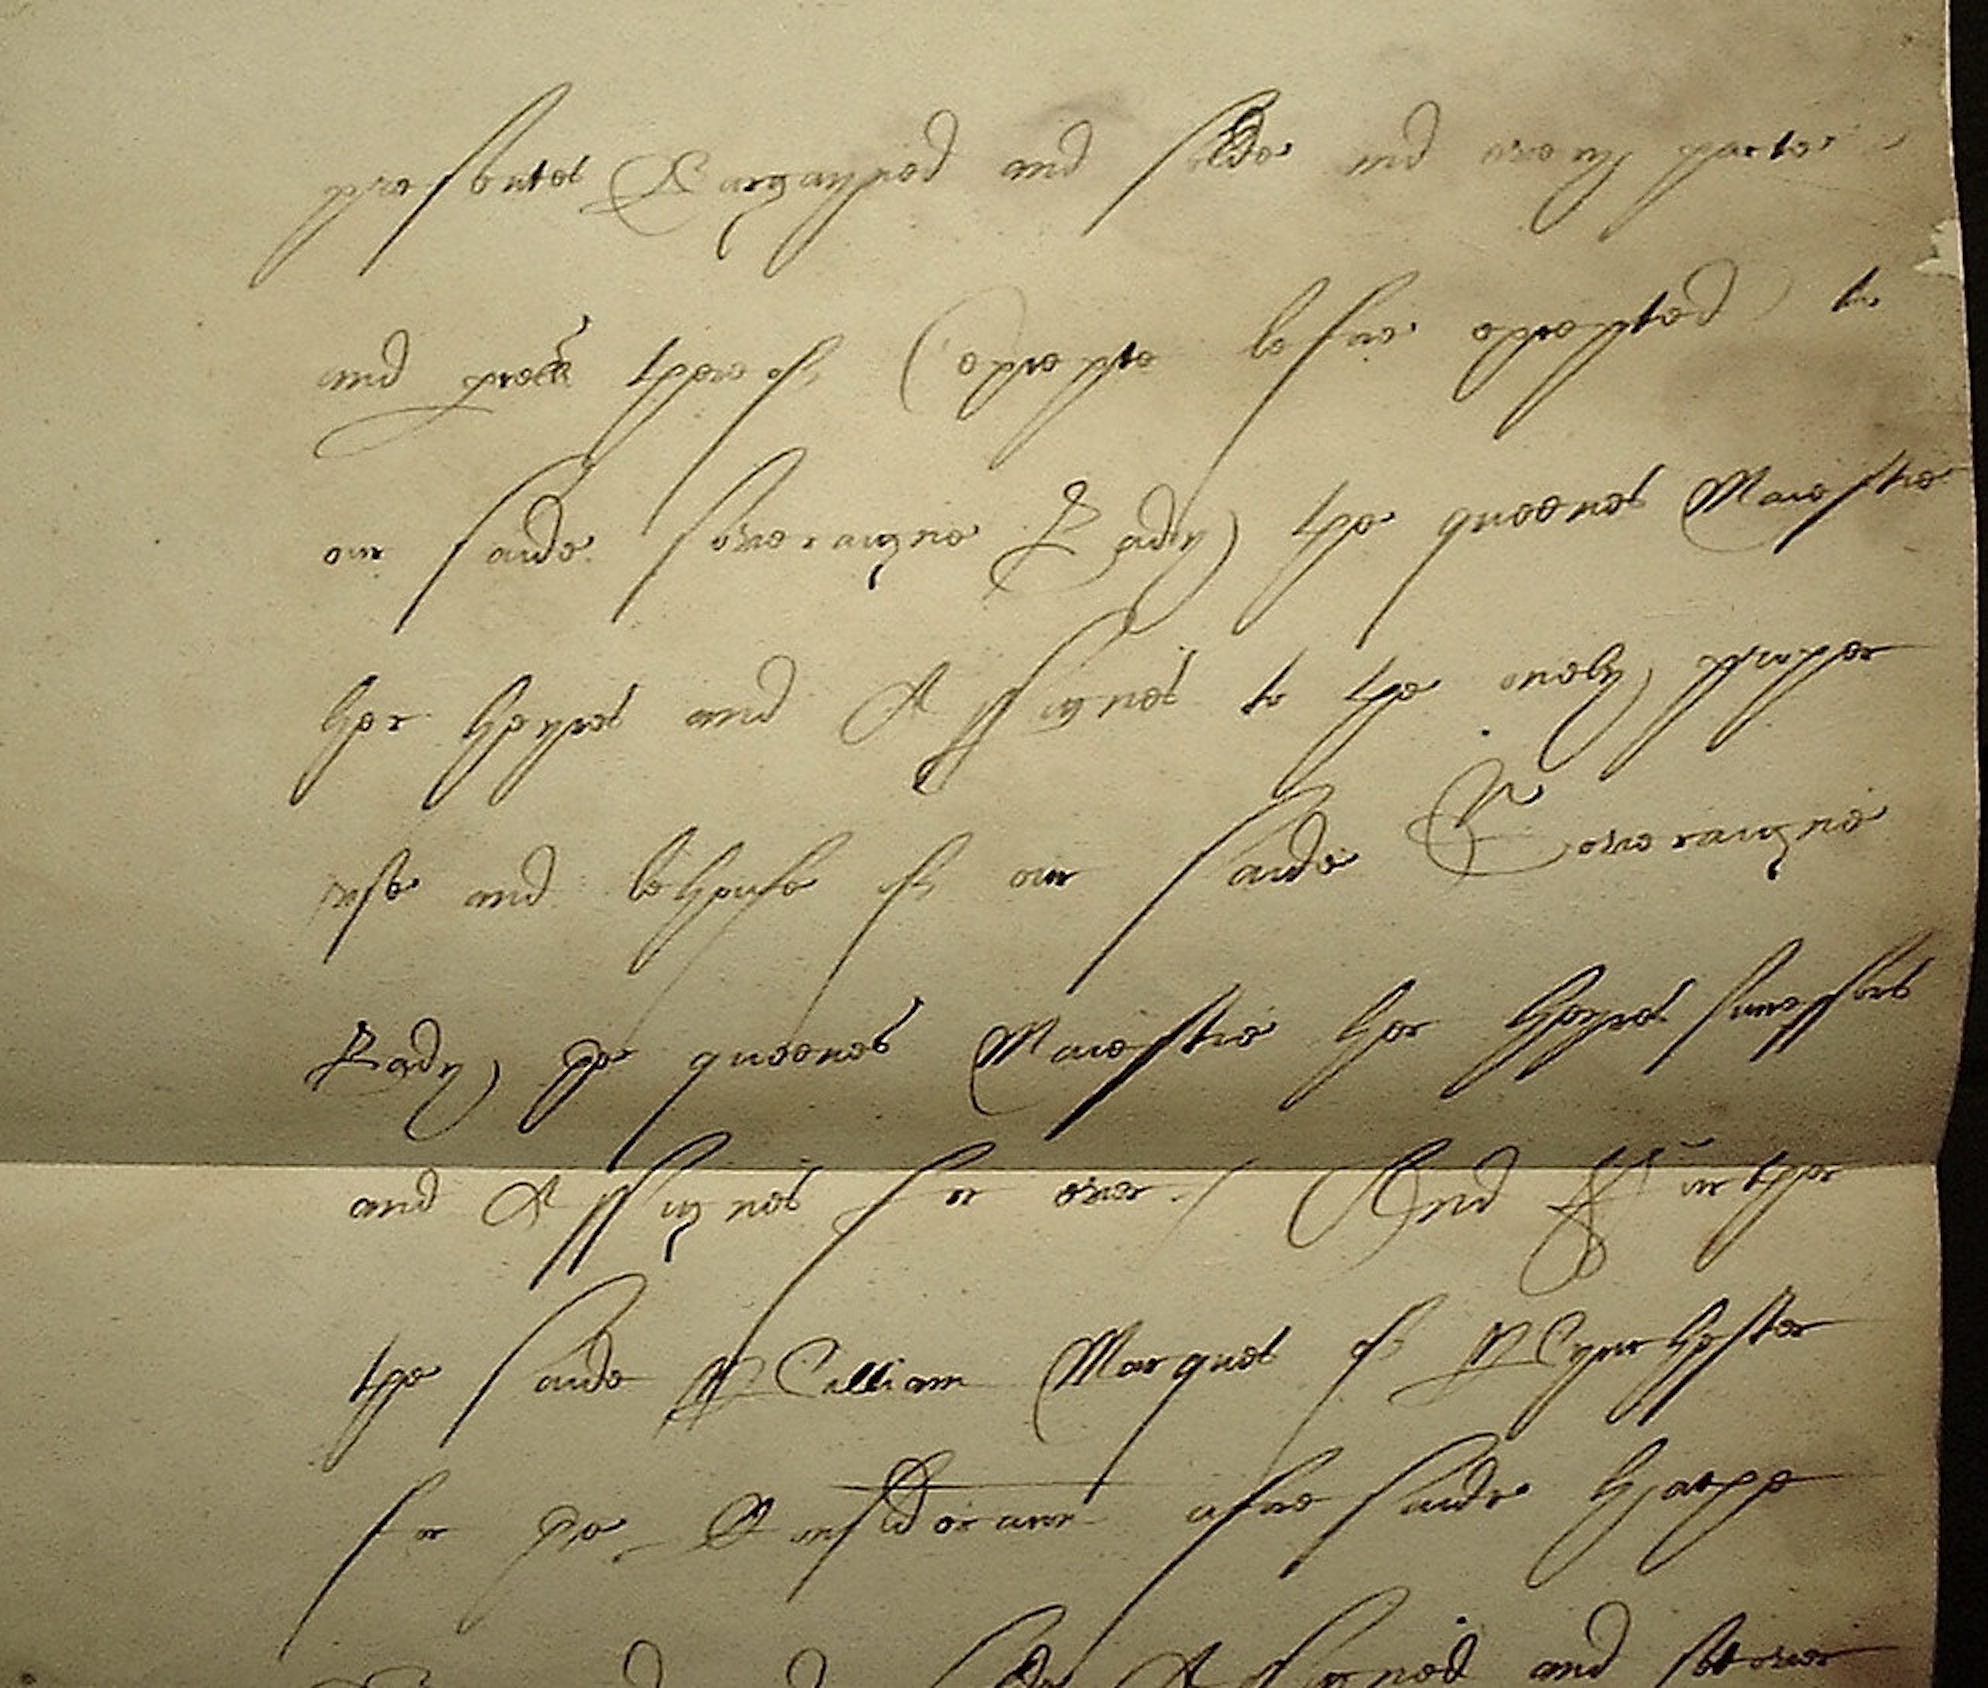 presentes Bargayned and solde and every parte
and prcell thereof (excepte before excepted) to
our saide Soveraigne Lady the quenes Maiestie
her heyres and Assignes to the onely propper
use and behoufe of our saide Soveraigne
Lady the quenes Maiestie her heyres successors
and Assignes for ever / And Further
the saide William Marques of Wynchester
for the Consideracion aforesaide hathe
solde Assigned and sett over